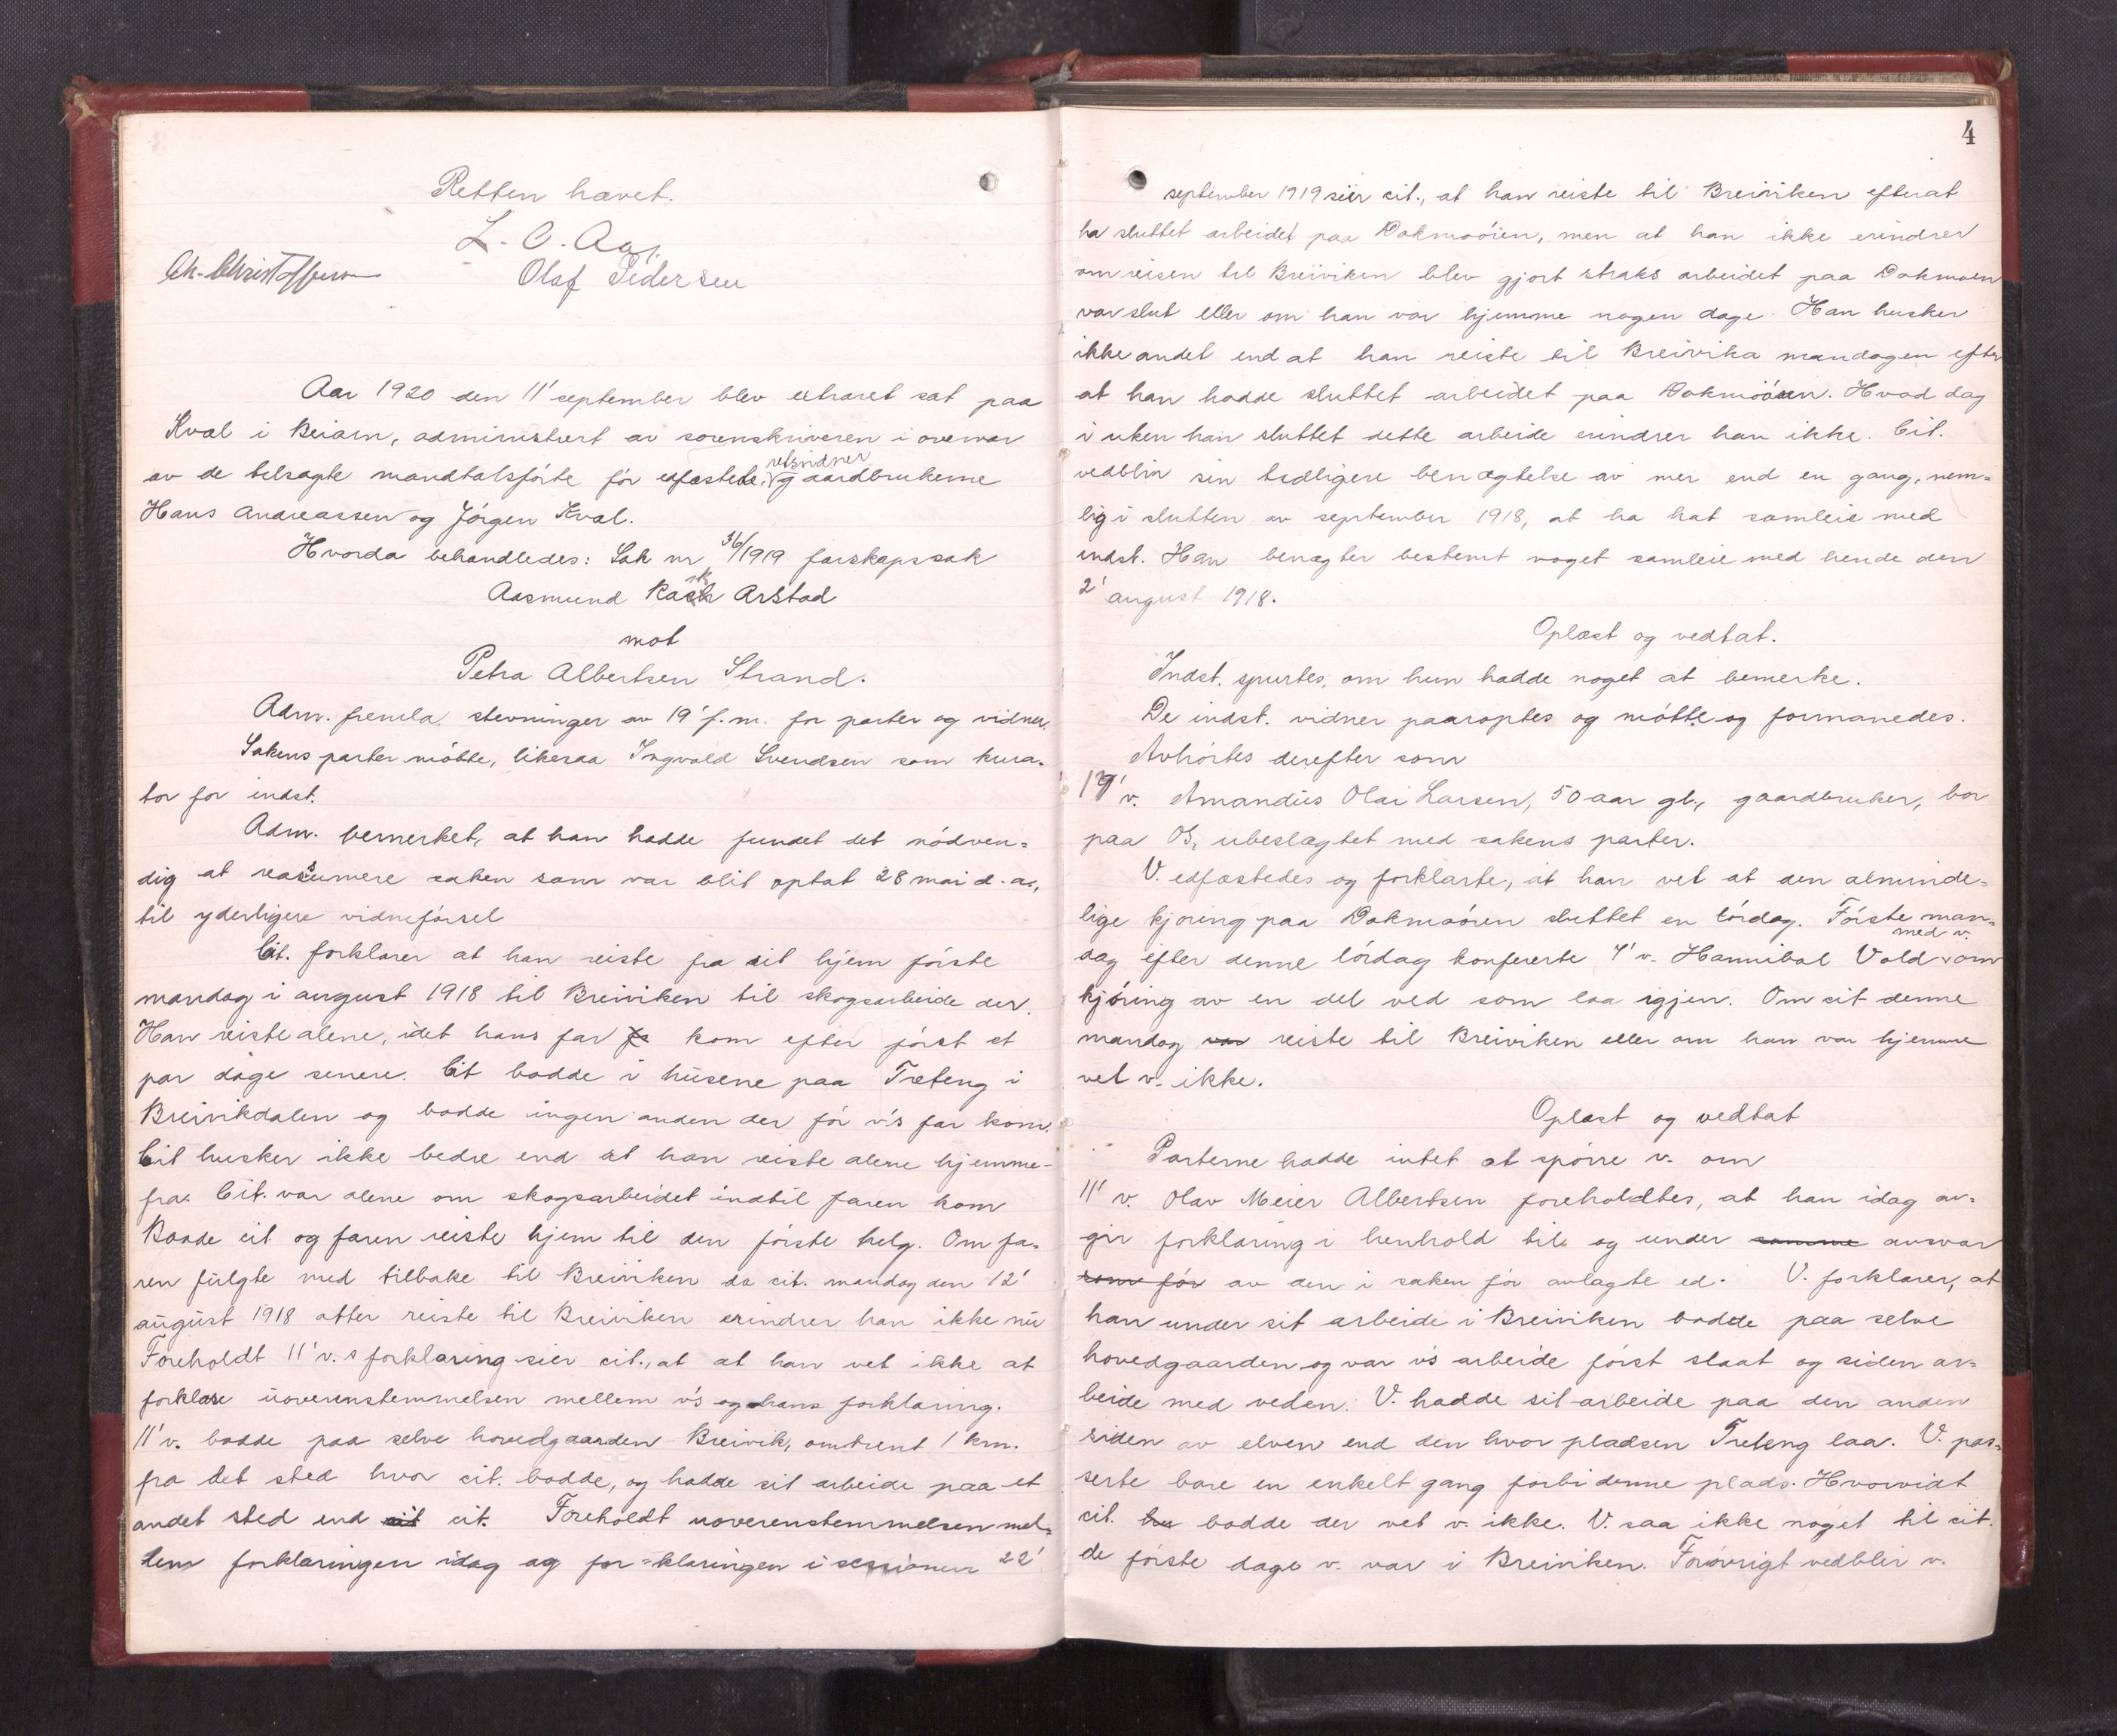 Retten hævet.
L. C. Aas,
Chr. Christoffersen
Olaf Pedersen
Aar 1920 den 11' september blev extraret sat paa
Kval i Beiarn, administrert av sorenskriveren i overvær
av de tilsagte mandtalsførte før edfæstede retsvidner gaardbrukerne
Hans Andreassen og Jörgen Kval.
Hvorda behandledes: Sak nr 36/1919 farskapssak
Aasmund Arstad
mot
Petra Albertsen Strand.
Adm. fremla stevninger av 19' f.m. for parter og vidner.
Sakens parter mötte, likesaa Ingvald Svendsen som kura-
tor for indst.
Adm. bemerket, at han hadde fundet det nödven=
dig at reassumere saken som var blit optat 28 mai d.a.,
til yderligere vidneførsel
Cit. forklarer at han reiste fra sit hjem förste
mandag i august 1918 til Breiviken til skogsarbeide der.
Han reiste alene, idet hans far kom efter först et
par dage senere. Cit bodde i husene paa Træteng i
Breivikdalen og bodde ingen anden der för v's far kom.
Cit husker ikke bedre end at han reiste alene hjemme-
fra. Cit. var alene om skogsarbeidet indtil faren kom
Baade cit og faren reiste hjem til den förste helg. Om fa-
ren fulgte med tilbake til Breiviken da cit. mandag den 12'
august 1918 atter reiste til Breiviken erindrer han ikke nu
Foreholdt 11' v.s forklaring sier cit., at at han vet ikke at
forklare uoverenstemmelsen mellem v's og hans forklaring.
11' v. bodde paa selve hovedgaarden Breivik, omtrent 1 km.
fra det sted hvor cit. bodde, og hadde sit arbeide paa et
andet sted end sit cit. Foreholdt uoverenstemmelsen mel=
lem forklaringen idag og for=klaringen i sessionen 22'
4
september 1919 sier cit., at han reiste til Breiviken efterat
ha sluttet arbeidet paa Dokmoöien, men at han ikke erindrer
om reisen til Breiviken blev gjort straks arbeidet paa Dokmoen
var slut eller om han var hjemme nogen dage. Han husker
ikke andet end at han reiste til Breivika mandagen efter
at han hadde sluttet arbeidet paa Dokmoören. Hvad dag
i uken han sluttet dette arbeide erindrer han ikke. Cit.
vedblir sin tidligere benægtelse av mer end en gang, nem=
lig i slutten av september 1918, at ha hat samleie med
indst. Han benægter bestemt noget samleie med hende den
2' august 1918.
Oplæst og vedtat.
Indst. spurtes, om hun hadde noget at bemerke.
De indst. vidner paaroptes og mötte og formanedes.
Avhörtes derefter som
19' v. Amandus Olai Larsen, 50 aar gl., gaardbruker, bor
paa Os, ubeslægtet med sakens parter.
V. edfæstedes og forklarte, at han vet at den alminde=
lige kjøring paa Dokmoören sluttet en lördag. Förste man=
dag efter denne lördag konfererte 7' v. Hannibal Vold med v. om
kjöring av en del ved som laa igjen. Om cit denne
mandag var reiste til Breiviken eller om han var hjemme
vet v. ikke.
Oplæst og vedtat
Parterne hadde intet at spörre v. om
11' v. Olav Meier Albertsen foreholdtes, at han idag av=
gir forklaring i henhold til og under samme ansvar
som för av den i saken för avlagte ed. V. forklarer, at
han under sit arbeide i Breiviken bodde paa selve
hovedgaarden og var v's arbeide först slaat og siden ar=
beide med veden. V. hadde sit arbeide paa den anden
siden av elven end den hvor pladsen Træteng laa. V. pas=
serte bare en enkelt gang forbi denne plads. Hvorvidt
cit. bodde der vet v. ikke. V. saa ikke noget til cit.
de förste dage v. var i Breiviken. Forövrigt vedblir v.